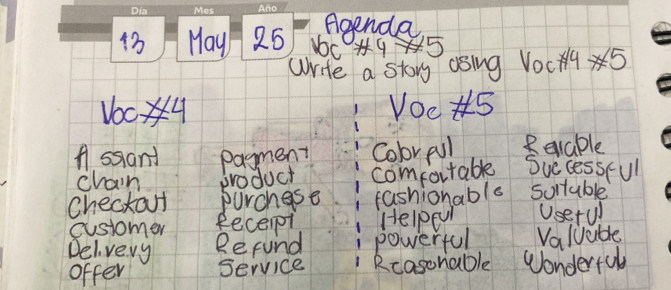 Día Mes Año
13 May 25
Agenda
Voc #4 #5
Write a story using Voc #4 #5
Voc #4
Assiant
chain
Checkout
customer
Delivery
offer
payment
product
purchase
Receipt
Refund
Service
Voc #5
Colorful
comfortable
fashionable
Helpful
powerful
Reasonable
Reliable
Successful
Suitable
Useful
Valuable
Wonderful